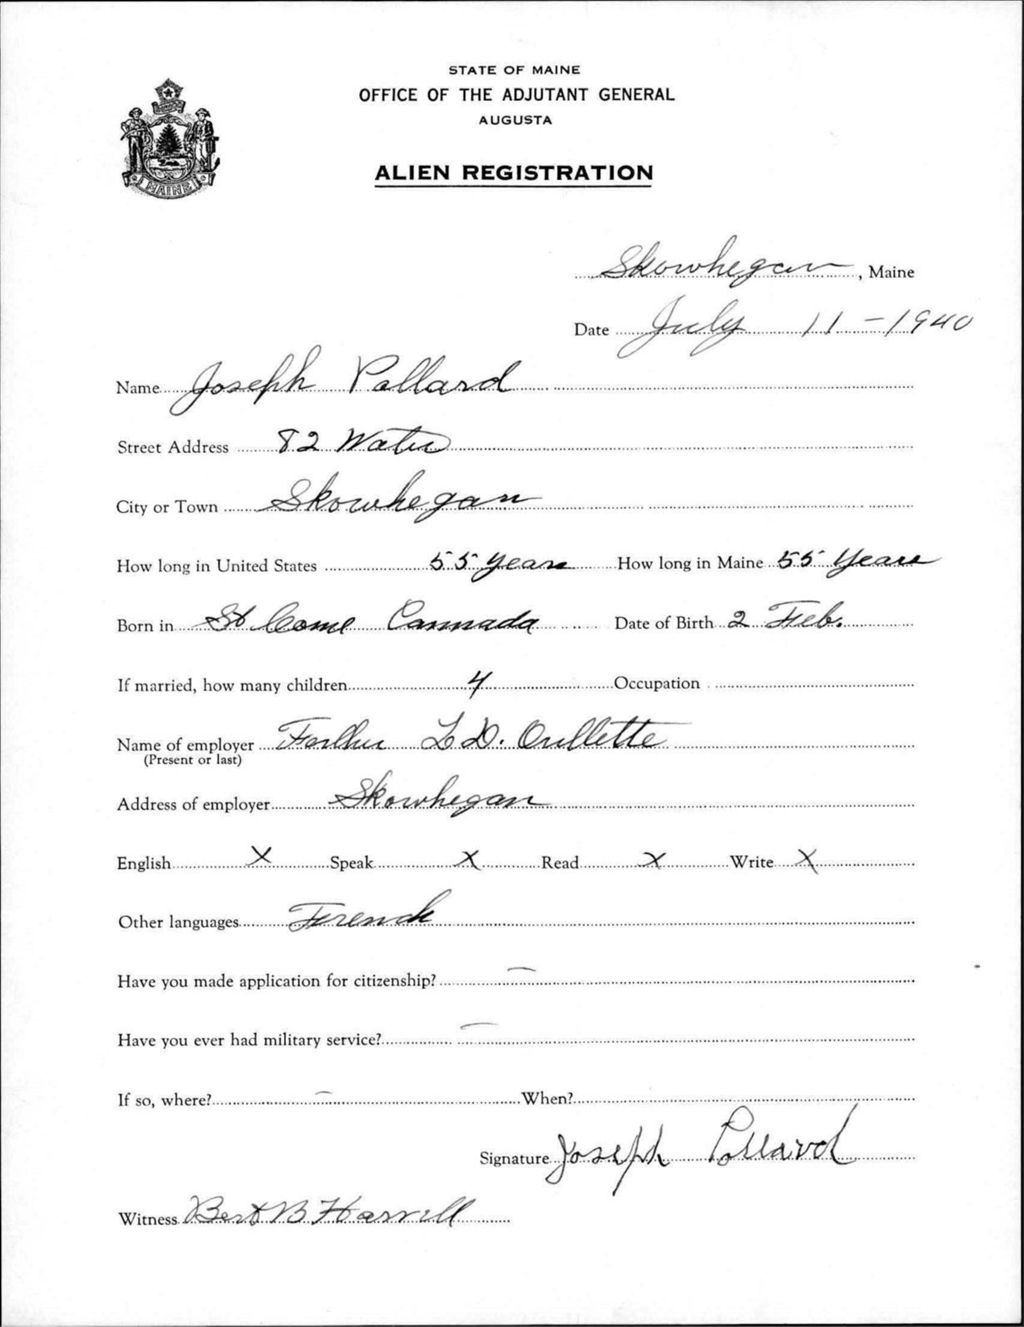 STATE OF MAINE
OFFICE OF THE ADJUTANT GENERAL
AUGUSTA
ALIEN REGISTRATION
MAINE
Skowhegan, Maine
Date July 11-1940
Name Joseph Pollard
Street Address 82 Water
City or Town Skowhegan
How long in United States 55 Years How long in Maine 55 Years
Born in St Come Cannada Date of Birth 2 Feb.
If married, how many children 4 Occupation
Name of employer Father L D. Oullette
(Present or last)
Address of employer Skowhegan
English X Speak X Read X Write X
Other languages French
Have you made application for citizenship? —
Have you ever had military service? —
If so, where? — When?
Signature Joseph Pollard
Witness Bert B